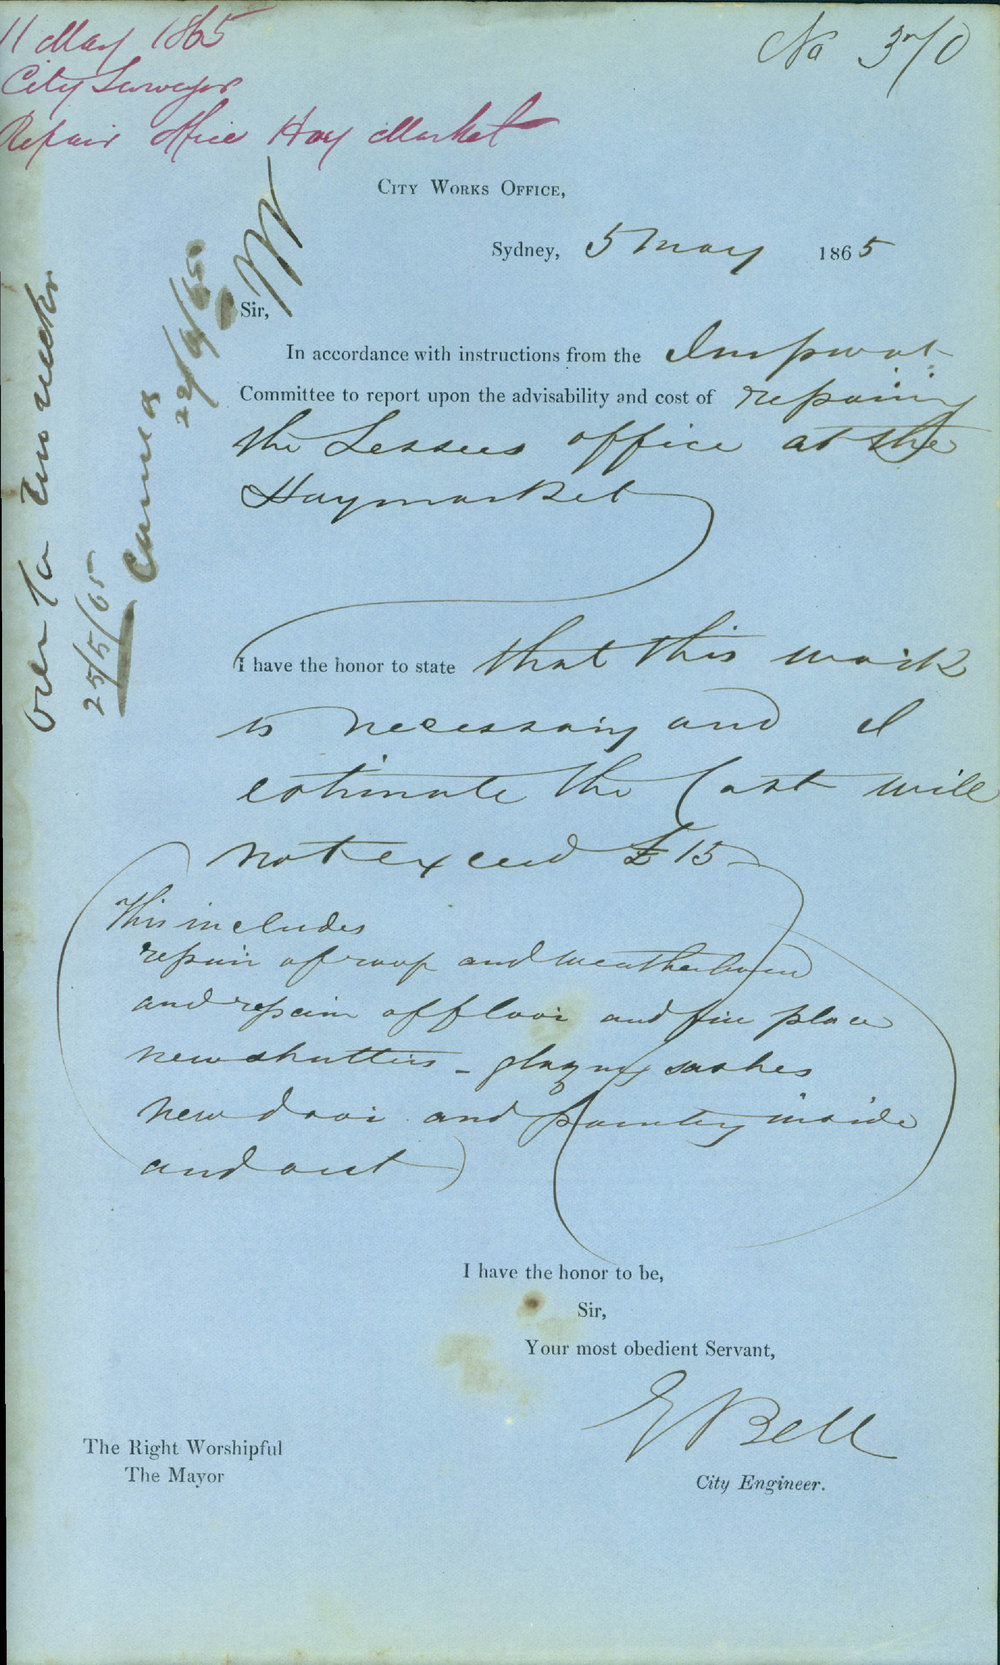 11 May 1865
City Surveyor
Repair Office Hay Market
No 370
CITY WORKS OFFICE,
Sydney, 5 May 1865
Sir,
In accordance with instructions from the Impvot
Committee to report upon the advisability and cost of repairing
the Lessees office at the
Haymarket
I have the honor to state that this work
is necessary and I
estimate the Cost will
not exceed £15
This includes
repair of roof and weatherboard
and repair of floor and fire place
new shutters - glazing sashes
new door and painting inside
and out
I have the honor to be,
Sir,
Your most obedient Servant,
E Bell
City Engineer.
The Right Worshipful
The Mayor
over for two weeks
25/5/65
Carried
22/6/65